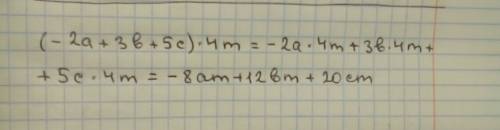 (-2a+3в+5c)·4m=-2a·4m+3в·4m+
+5c·4m=-8am+12вm+20cm